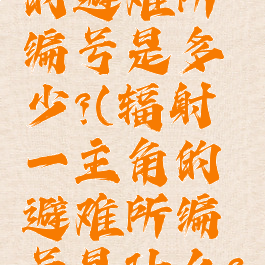 的避难所
编号是多
少?(辐射
一主角的
避难所编
号是什么?